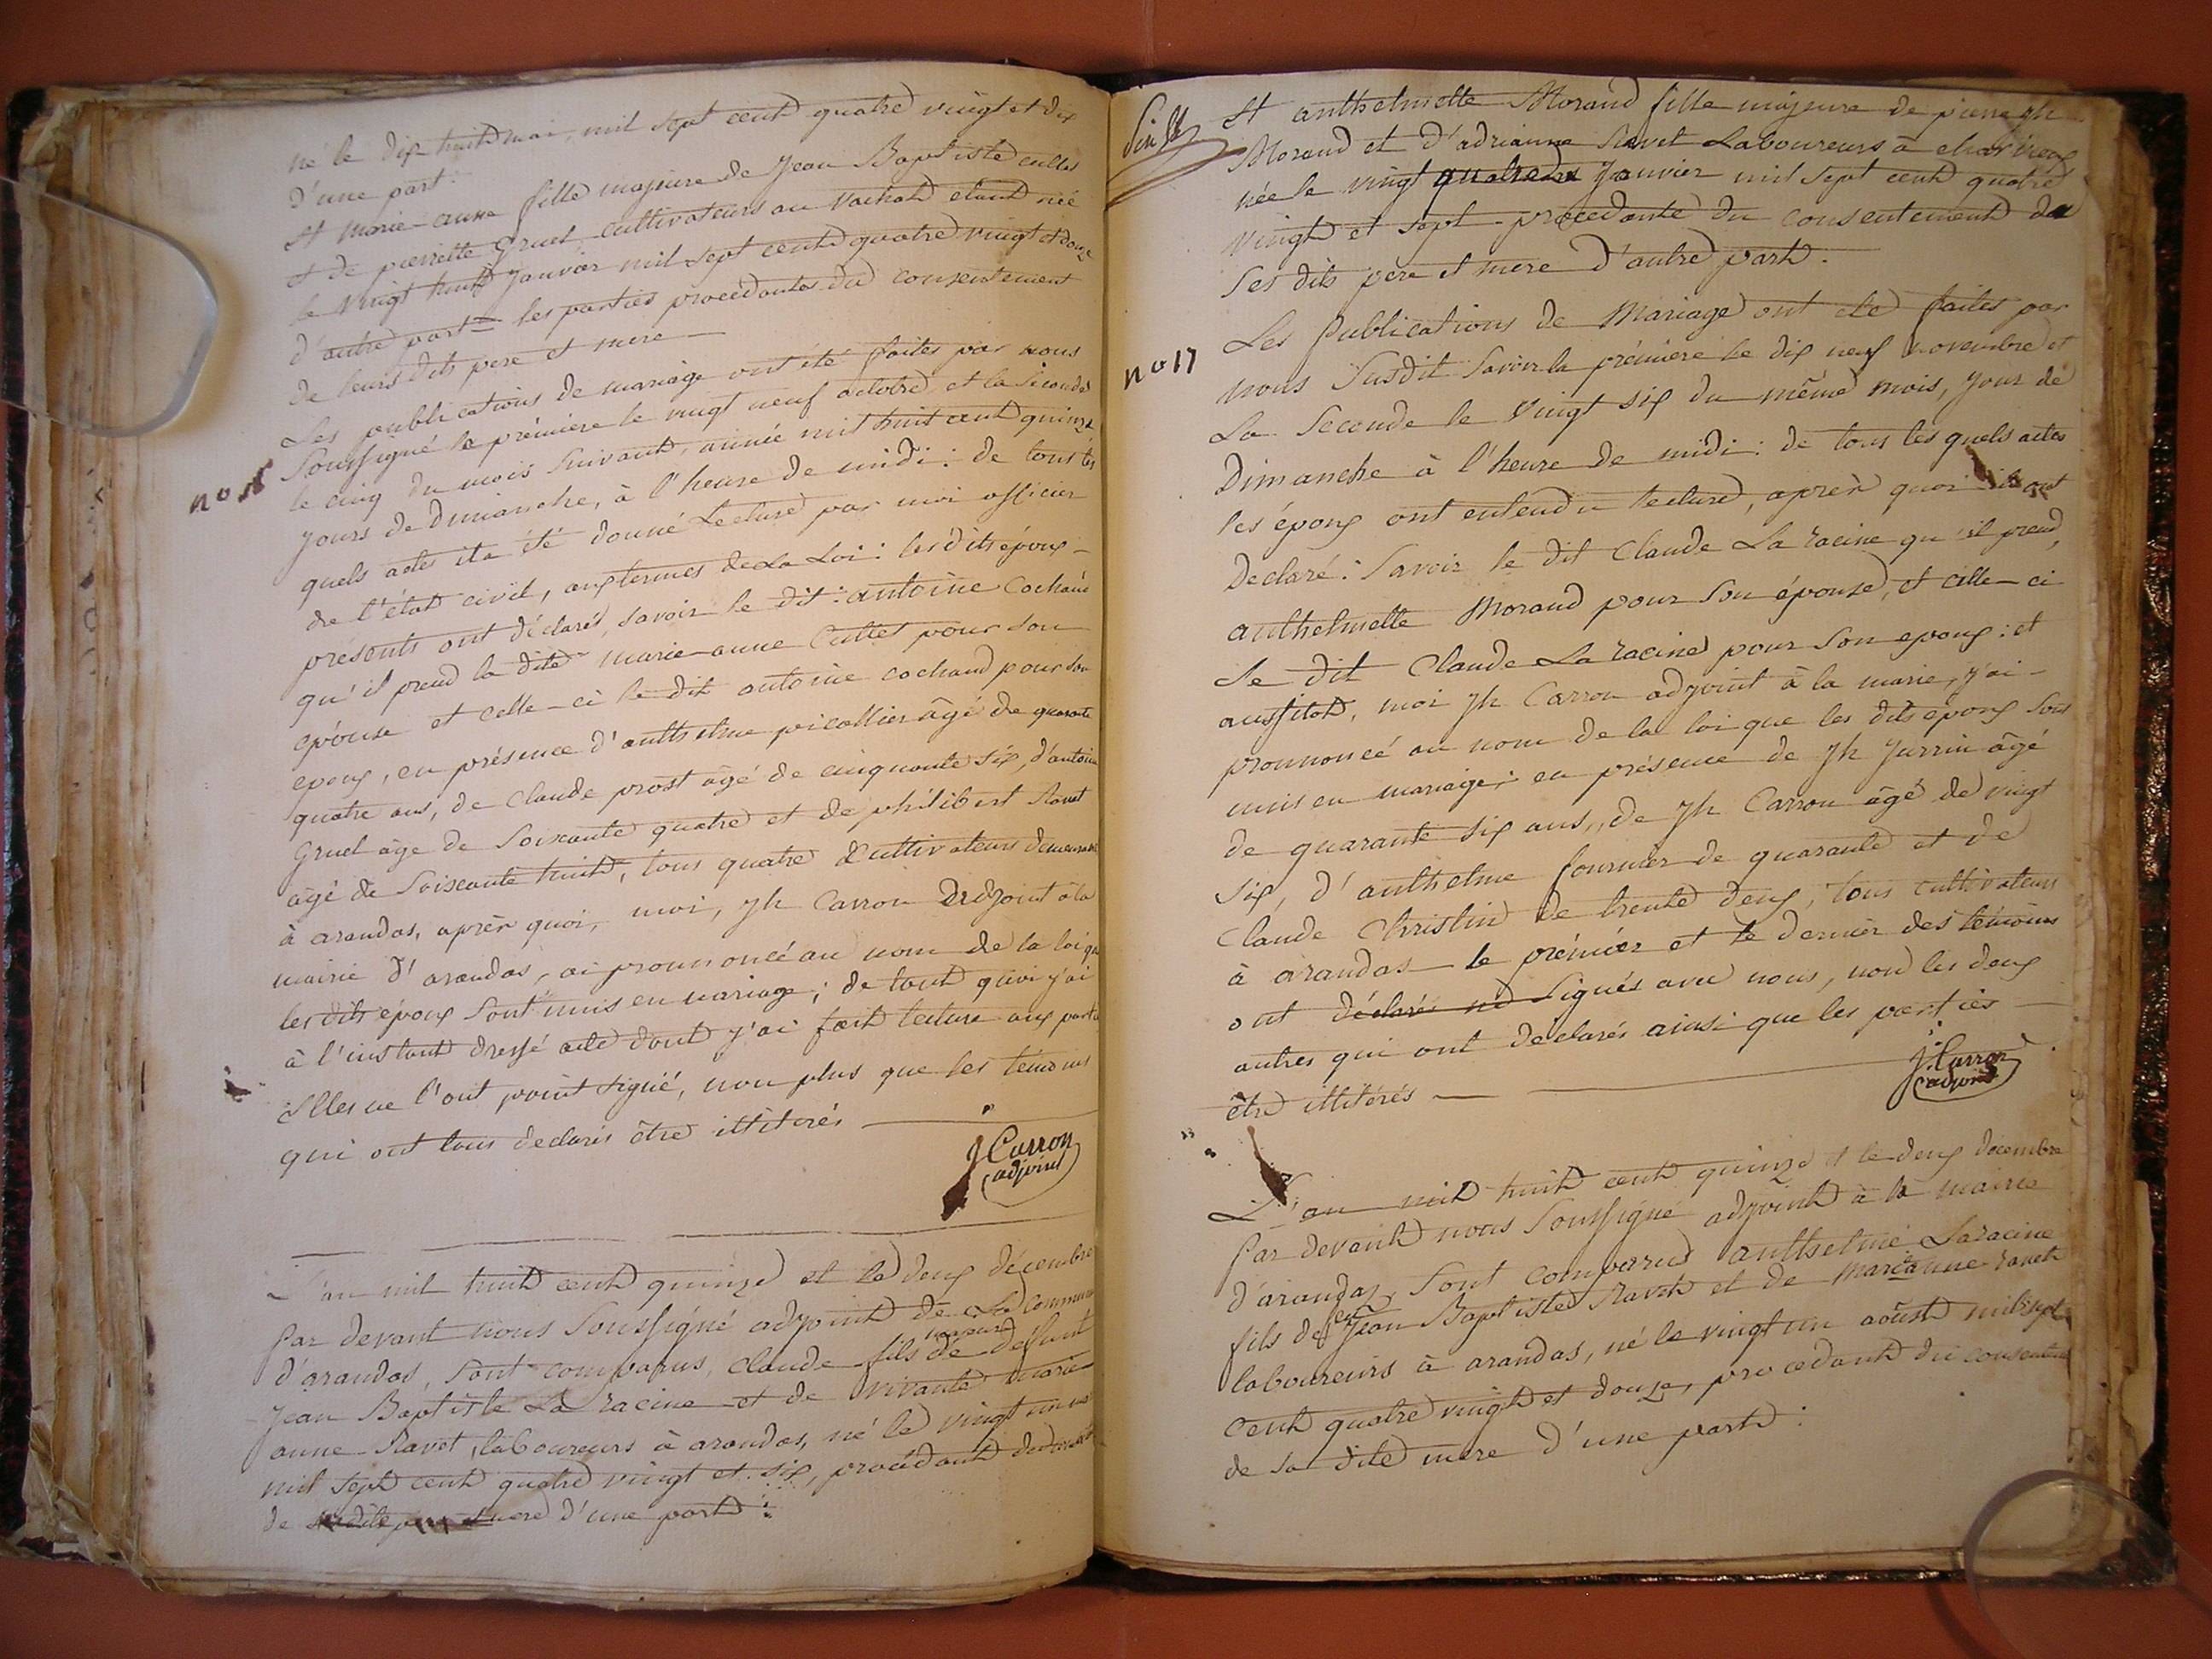 né le dix huit mai mil sept cent quatre vingt et dix
d'une part.
et marie anne fille majeure de jean Baptiste cullet
et de pierrette Gruel cultivateurs au vachat étant née
le vingt huit janvier mil sept cent quatre vingt et douze
d'autre part= les parties procedantes du consentement
de leurs dits pere et mere
Les publications de mariage ont été faites par nous
Soussigné la prémière le vingt neuf octobre et la seconde
le cinq du mois suivant, année mil huit cent quinze
jours de dimanche, à l'heure de midi: de tous les
quels actes il a été donné Lecture par moi officier
de l'état civil, aux termes de La Loi: les dits époux
présents ont déclaré, savoir le dit: antoine Cochand
qu'il prend la dite marie anne Cullet pour son
epouse et celle-ci le dit antoine cochand pour son
epoux, en présence d'anthelme picollier âgé de quarante
quatre ans, de Claude prost âgé de cinquante six, d'antoine
Gruel âgé de soixante quatre et de philibert Ravet
âgé de soixante huit, tous quatre cultivateurs demeurant
à arandas, après quoi, moi, jh Carron adjoint à la
mairie d'arandas, ai prononcé au nom de la loi que
les dits époux sont unis en mariage; de tout quoi j'ai
à l'instant dressé acte dont j'ai fait lecture aux parties
Elles ne l'ont point signé, non plus que les témoins
qui ont tous declarés être illitérés
J Carron
adjoint
L'an mil huit cent quinze et le deux décembre
par devant nous Soussigné adjoint de La Commune
d'arandas, sont comparus, Claude fils majeur de defunt
Jean Baptiste La racine et de vivante marie
anne Ravet, laboureurs à arandas, né le vingt un
mil sept cent quatre vingt et six, procédant du
de mere d'une part:
et anthelmette Morand fille majeure de pierre jh
Morand et d'adrianne Ravet Laboureurs à
née le vingt quatre janvier mil sept cent quatre
vingt et sept procedante du consentement de
ses dits pere et mere d'autre part.
no 17
Les Publications de Mariage ont été faites par
nous susdit Savoir la prémiere le dix neuf novembre et
La Seconde le vingt six du même mois, jour de
Dimanche à l'heure de midi: de tous les quels actes
les époux ont entendu lecture, après quoi ils ont
Declaré: Savoir le dit Claude La racine qu'il prend,
anthelmette Morand pour son épouse, et celle-ci
Le dit Claude La racine pour son epoux: et
aussitot, moi jh Carron adjoint à la marie, j'ai
prononcé au nom de la loi que les dits époux sont
unis en mariage; en présence de jh jurrin âgé
de quarante six ans, de jh Carron âgé de vingt
six, d'anthelme fournier de quarante et de
Claude Christin de trente deux, tous cultivateurs
à arandas le prémier et le dernier des témoins
ont déclaré ne signés avec nous, non les deux
autres qui ont declarés ainsi que les parties
être illitérés
J. Carron
adjoint
L'an mil huit cent quinze et le deux décembre
par devant nous soussigné adjoint à la mairie
d'arandas, sont comparus anthelme Laracine
fils de feu Jean Baptiste Ravet et de marianne ravet
laboureurs à arandas, né le vingt un aoûst mil sept
cent quatre vingt et douze, procedant du consentement
de sa dite mere d'une part: